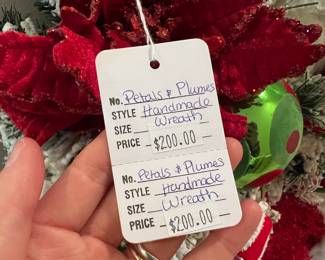 No. Petals & Plumes
STYLE Handmade
SIZE Wreath
PRICE $200.00
No. Petals & Plumes
STYLE Handmade
SIZE Wreath
PRICE $200.00